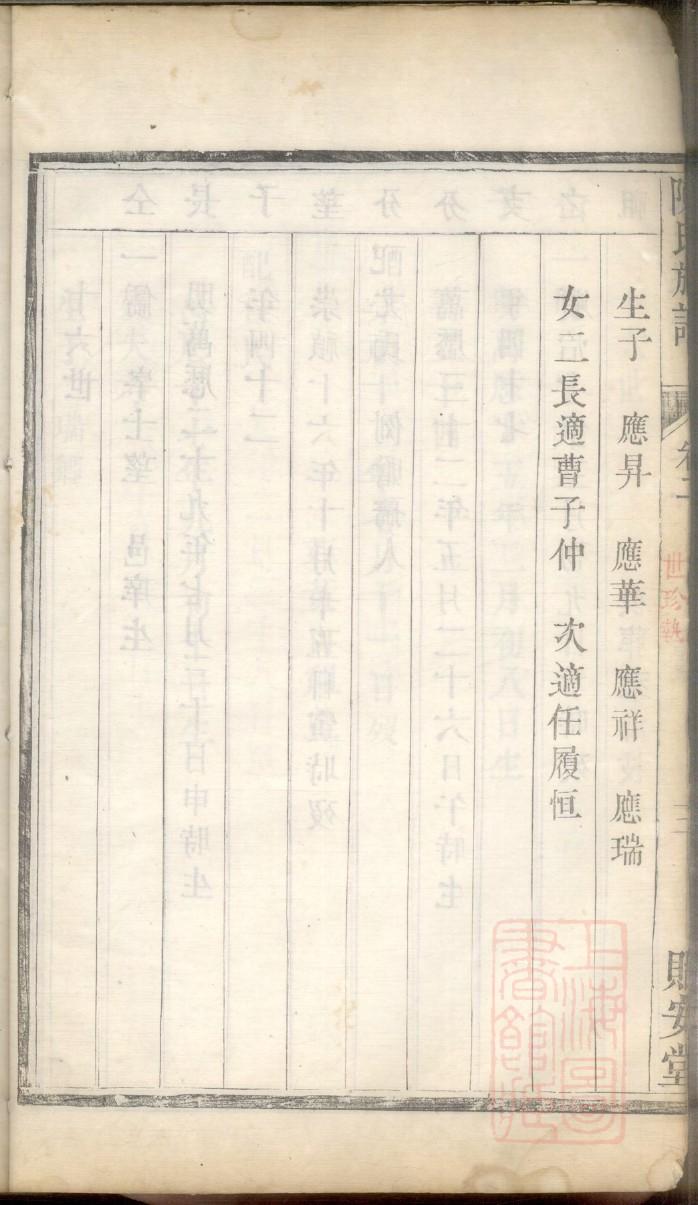 生子 應昇 應華 應祥 應瑞
女二長適曹子仲 次適任履恒
陳氏族譜
卷二
世珍執
三
貽安堂
上海圖書館藏